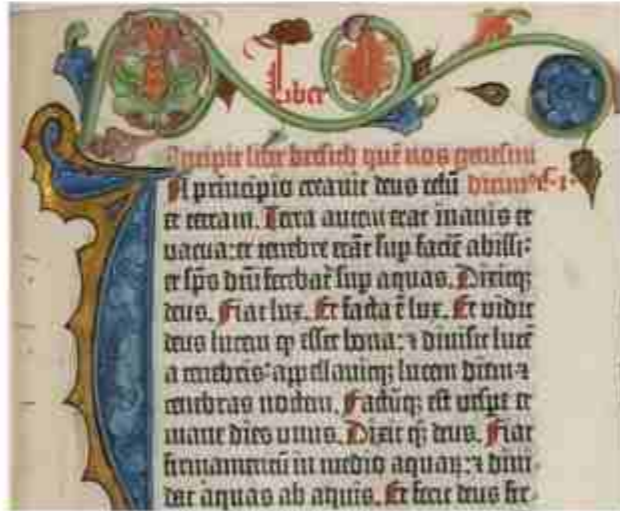 Liber
Incipit liber bresich quē nos genesim
In principio creavit deus celū dicim9 C. 1.
et terram. Terra autem erat inanis et
vacua: et tenebre erāt sup faciē abissi:
et spūs dni ferebat̄ sup aquas. Dixitq;
deus. Fiat lux. Et facta ē lux. Et vidit
deus lucem qꝫ esset bona: ⁊ divisit lucē
a tenebris· appellavitq; lucem diem ⁊
tenebras noctem. Factūq; est vespe et
mane dies unus. Dixit qꝫ deus. Fiat
firmamentū in medio aquaꝝ: ⁊ divi-
dat aquas ab aquis. Et fecit deus fir-